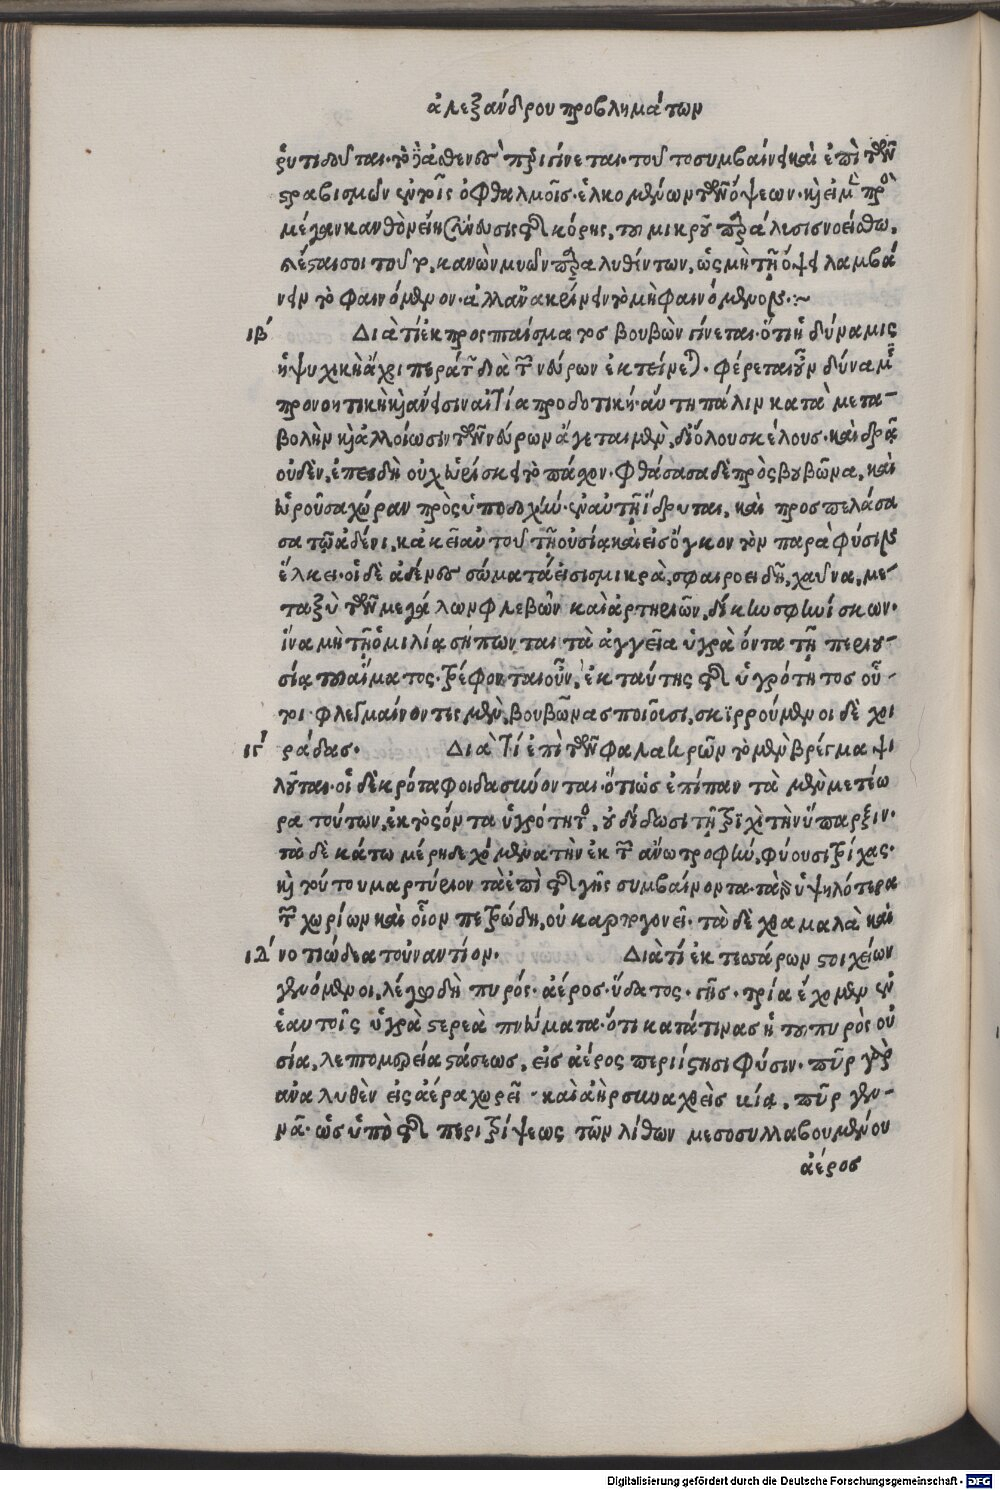 ἀλεξάνδρου προβλημάτων
ῥυτιδοῦται· τὸ ἀσθενὲς γίνεται· τοῦτο συμβαίνει καὶ ἐπὶ τῶν
στραβισμῶν ἐν τοῖς ὀφθαλμοῖς· ἑλκομένων τῶν ὄψεων· καὶ εἰ μὲν πρὸς
μέγαν κανθὸν εἴη νεῦσις τῆς κόρης, τοῦ μικροῦ παράλεσις νοείσθω,
μυῶν παραλυθέντων, ὡς μὴ τῇ ὄψει λαμβά
νειν τὸ φαινόμενον· ἀλλ' ἀνακρίνειν τὸ μὴ φαινόμενον:~
ιβ΄ Διὰ τί ἐκ προσπταίσματος βουβὼν γίνεται· ὅτι ἡ δύναμις
ἡ ψυχικὴ ἄχρι περάτων διὰ τῶν νεύρων ἐκτείνεται· φέρεται οὖν δύναμις
προνοητικὴ καὶ αὐτὴ πάλιν κατὰ μετα-
βολὴν καὶ ἀλλοίωσιν τῶν νεύρων ἄγεται μὲν, δι' ὅλου σκέλους· καὶ δρᾷ
οὐδὲν, ἐπειδὴ οὐχ εὑρίσκει τὸ πάσχον· φθάσασα δὲ πρὸς βουβῶνα, καὶ
εὑροῦσα χώραν πρὸς ὑποδοχὴν· ἐν αὐτῇ ἵδρυται, καὶ προσπελάσα
σα τῷ ἀδένι, κἀκεῖ αὐτοῦ τῇ οὐσίᾳ καὶ εἰς ὄγκον τὸν παρὰ φύσιν
ἕλκει· οἱ δὲ ἀδένες σώματά εἰσι σμικρὰ, σφαιροειδῆ, χαῦνα, με-
ταξὺ τῶν μεγάλων φλεβῶν καὶ ἀρτηριῶν, δίκην σφηνίσκων·
ἵνα μὴ τῇ ὁμιλίᾳ σήπωνται τὰ ἀγγεῖα ὑγρὰ ὄντα τῇ περιου-
σίᾳ τοῦ αἵματος· τρέφονται οὖν, ἐκ ταύτης τῆς ὑγρότητος οὗ-
τοι φλεγμαίνοντες μὲν, βουβῶνας ποιοῦσι, σκιρρούμενοι δὲ χοι
ιγ΄ ράδας· Διὰ τί ἐπὶ τῶν φαλακρῶν τὸ μὲν βρέγμα ψι
λοῦται· οἱ δὲ κρόταφοι δασύονται· ὅτι ὡς ἐπίπαν τὰ μὲν μετέω
ρα τούτων, ἐκτὸς ὄντα ὑγρότητος, οὐ δίδωσι τῇ τριχὶ τὴν ὕπαρξιν·
τὰ δὲ κάτω μέρη δεχόμενα τὴν ἐκ τῶν ἄνω τροφὴν, φύουσι τρίχας·
καὶ τούτου μαρτύριον τὰ ἐπὶ τῆς γῆς συμβαίνοντα· τὰ γὰρ ὑψηλότερα
τῶν χωρίων καὶ οἷον πετρώδη, οὐ καρπογονεῖ· τὰ δὲ χαμαλὰ καὶ
ιδ΄ νοτιώδεα τοὐναντίον· Διὰ τί ἐκ τεσσάρων στοιχείων
γενόμενοι, λέγω δὴ πυρός· ἀέρος· ὕδατος· γῆς· τρία ἔχομεν ἐν
ἑαυτοῖς ὑγρὰ στερεὰ πνεύματα· ὅτι κατά τινας ἡ τοῦ πυρὸς οὐ
σία, λεπτομερείᾳ στάσεως, εἰς ἀέρος περιίστησι φύσιν· πῦρ γὰρ
ἀναλυθὲν εἰς ἀέρα χωρεῖ· καὶ ἀὴρ πῦρ γεν-
νᾷ· ὡς ὑπὸ τῆς περιτρίψεως τῶν λίθων μεσοσυλλαβουμένου
ἀέρος
Digitalisierung gefördert durch die Deutsche Forschungsgemeinschaft - DFG